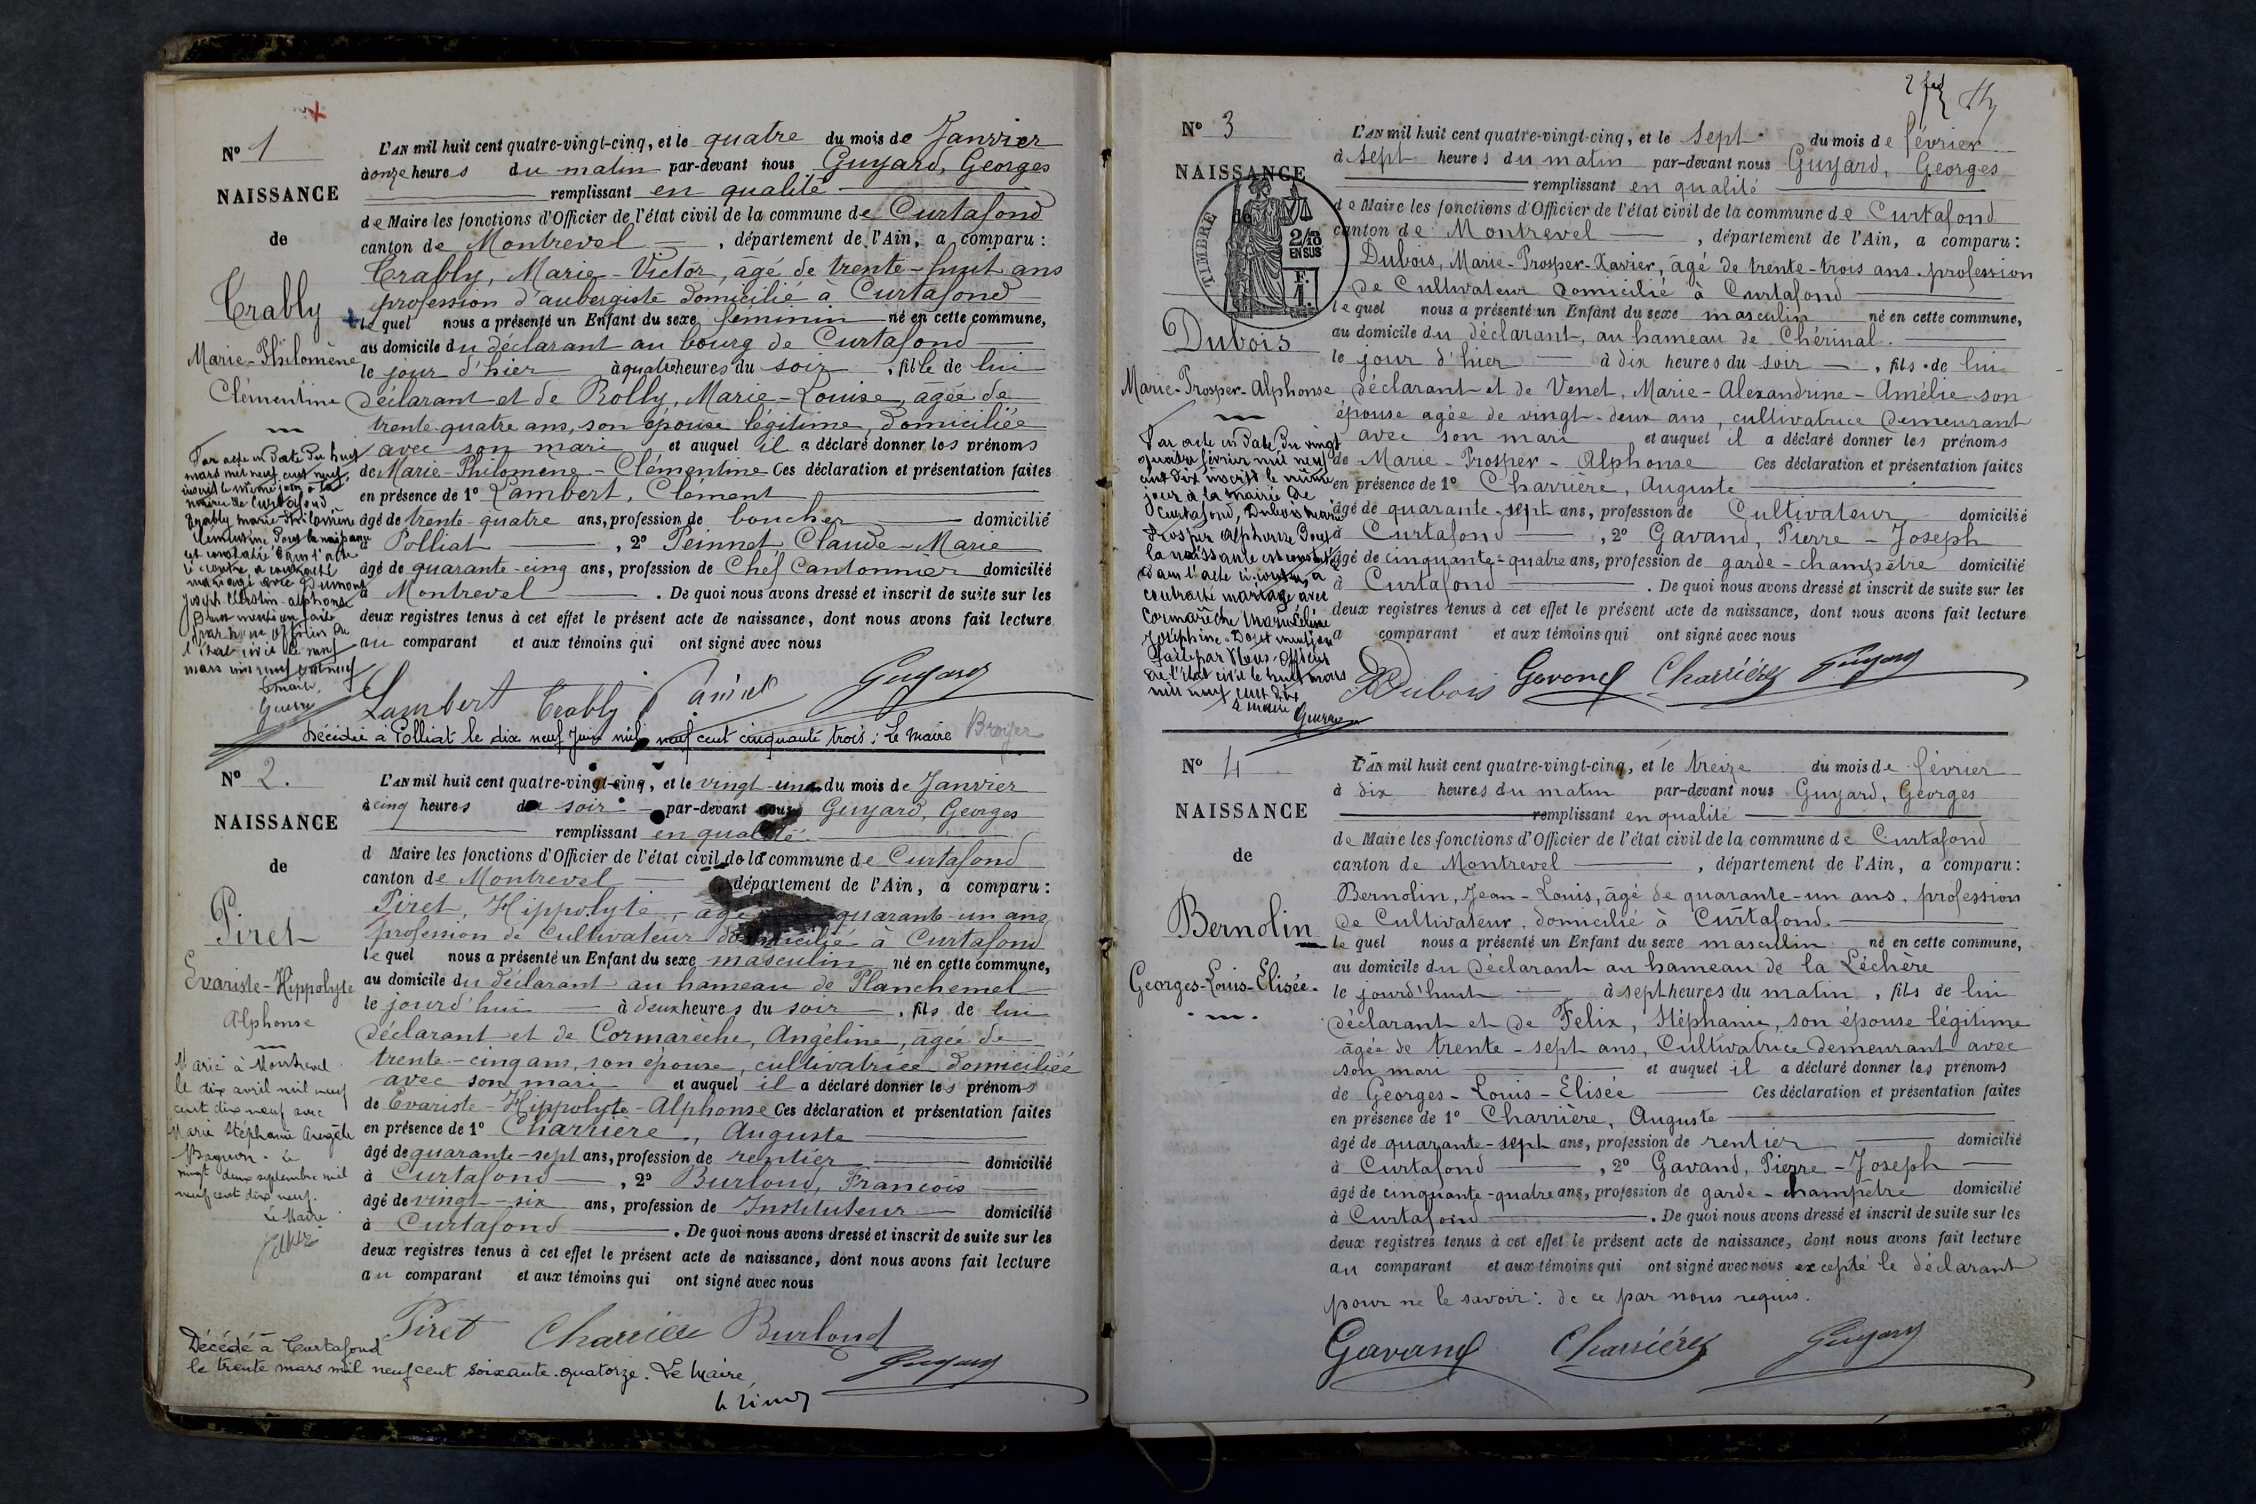 N° 1
NAISSANCE
de
Trably
Marie-Philomène
Clémentine
Par acte en date du huit
mars mil neuf cent neuf
inscrit le même jour à la
mairie de Curtafond
Trably Marie Philomène
Clémentine dont la naissance
est constatée dans l'acte
ci contre a contracté
mariage avec Dumont
Joseph Célestin-alphonse
Dont mention faite
par nous officier de
l'état civil le neuf
mars mil neuf cent neuf
Le maire
Guerre
L'AN mil huit cent quatre-vingt-cinq, et le quatre du mois de Janvier
à onze heures du matin par-devant nous Guyard, Georges
remplissant en qualité
de Maire les fonctions d'Officier de l'état civil de la commune de Curtafond
canton de Montrevel , département de l'Ain, a comparu :
Trably, Marie-Victor, âgé de trente-huit ans
profession d'aubergiste domicilié à Curtafond
le quel nous a présenté un Enfant du sexe feminin né en cette commune,
au domicile du déclarant au bourg de Curtafond
le jour d'hier à quatre heures du soir , fille de lui
déclarant et de Rolly, Marie-Louise, âgée de
trente-quatre ans, son épouse légitime, domiciliée
avec son mari et auquel il a déclaré donner les prénoms
de Marie-Philomène-Clémentine Ces déclaration et présentation faites
en présence de 1° Lambert, Clément
âgé de trente-quatre ans, profession de boucher domicilié
à Polliat , 2° Peinnet, Claude-Marie
âgé de quarante-cinq ans, profession de Chef Cantonnier domicilié
à Montrevel . De quoi nous avons dressé et inscrit de suite sur les
deux registres tenus à cet effet le présent acte de naissance, dont nous avons fait lecture
au comparant et aux témoins qui ont signé avec nous
Lambert Trably Guyard
Décédée à Polliat le dix neuf Juin mil neuf cent cinquante trois ; Le Maire Broyer
N° 2.
NAISSANCE
de
Piret
Evariste-Hippolyte
Alphonse
Marié à Montrevel
le dix avril mil neuf
cent dix neuf avec
Marie Stéphanie Angèle
Le
vingt deux septembre mil
neuf cent dix neuf.
Le Maire
L'AN mil huit cent quatre-vingt-cinq, et le vingt-un du mois de Janvier
à cinq heures du soir par-devant nous Guyard, Georges
remplissant en qualité
d Maire les fonctions d'Officier de l'état civil de la commune de Curtafond
canton de Montrevel département de l'Ain, a comparu :
Piret, Hippolyte, âgé quarante-un ans
profession de Cultivateur domicilié à Curtafond
le quel nous a présenté un Enfant du sexe masculin né en cette commune,
au domicile du déclarant au hameau de Planchemel
le jourd'hui à deux heures du soir , fils de lui
déclarant et de Cormarèche, Angéline, âgée de
trente-cinq ans, son épouse, cultivatrice domiciliée
avec son mari et auquel il a déclaré donner les prénoms
de Evariste-Hippolyte-Alphonse Ces déclaration et présentation faites
en présence de 1° Charrière, Auguste
âgé de quarante-sept ans, profession de rentier domicilié
à Curtafond , 2° Burloud, François
âgé de vingt-six ans, profession de Instituteur domicilié
à Curtafond . De quoi nous avons dressé et inscrit de suite sur les
deux registres tenus à cet effet le présent acte de naissance, dont nous avons fait lecture
au comparant et aux témoins qui ont signé avec nous
Piret Charrière Burloud
Guyard
Décédé à Curtafond
le trente mars mil neuf cent soixante-quatorze. Le Maire
N° 3
NAISSANCE
de
TIMBRE
2/10
EN SUS
F.
1.
Dubois
Marie-Prosper-Alphonse
Par acte en date du vingt
quatre février mil neuf
cent dix inscrit le même
jour à la mairie de
Curtafond, Dubois Marie
Prosper Alphonse dont
la naissance est constatée
dans l'acte ci-contre, a
contracté mariage avec
Cormarèche Marie Céline
Joséphine. Dont mention
faite par Nous officier
de l'état civil le huit mars
mil neuf cent dix
Le maire
Guerre
L'AN mil huit cent quatre-vingt-cinq, et le sept du mois de février
à sept heures du matin par-devant nous Guyard, Georges
remplissant en qualité
de Maire les fonctions d'Officier de l'état civil de la commune de Curtafond
canton de Montrevel , département de l'Ain, a comparu :
Dubois, Marie-Prosper-Xavier, âgé de trente-trois ans. profession
de Cultivateur domicilié à Curtafond
le quel nous a présenté un Enfant du sexe masculin né en cette commune,
au domicile du déclarant, au hameau de Chérinal.
le jour d'hier à dix heures du soir , fils de lui
déclarant et de Venet, Marie-Alexandrine-Amélie son
épouse agée de vingt-deux ans, cultivatrice demeurant
avec son mari et auquel il a déclaré donner les prénoms
de Marie-Prosper-Alphonse Ces déclaration et présentation faites
en présence de 1° Charriere, Auguste
âgé de quarante-sept ans, profession de Cultivateur domicilié
à Curtafond , 2° Gavand, Pierre-Joseph
âgé de cinquante-quatre ans, profession de garde-champêtre domicilié
à Curtafond . De quoi nous avons dressé et inscrit de suite sur les
deux registres tenus à cet effet le présent acte de naissance, dont nous avons fait lecture
a comparant et aux témoins qui ont signé avec nous
Dubois Gavand Charrière Guyard
N° 4
NAISSANCE
de
Bernolin
Georges-Louis-Elisée.
L'AN mil huit cent quatre-vingt-cinq, et le treize du mois de février
à dix heures du matin par-devant nous Guyard, Georges
remplissant en qualité
de Maire les fonctions d'Officier de l'état civil de la commune de Curtafond
canton de Montrevel , département de l'Ain, a comparu :
Bernolin, Jean-Louis, âgé de quarante-un ans, profession
de Cultivateur, domicilié à Curtafond.
le quel nous a présenté un Enfant du sexe masculin né en cette commune,
au domicile du déclarant au hameau de la Léchère
le jourd'huit à sept heures du matin , fils de lui
déclarant et de Felix, Stéphanie, son épouse légitime
âgée de trente-sept ans, Cultivatrice demeurant avec
son mari et auquel il a déclaré donner les prénoms
de Georges-Louis-Elisée Ces déclaration et présentation faites
en présence de 1° Charrière, Auguste
âgé de quarante-sept ans, profession de rentier domicilié
à Curtafond , 2° Gavand, Pierre-Joseph
âgé de cinquante-quatre ans, profession de garde-champêtre domicilié
à Curtafond . De quoi nous avons dressé et inscrit de suite sur les
deux registres tenus à cet effet le présent acte de naissance, dont nous avons fait lecture
au comparant et aux témoins qui ont signé avec nous excepté le déclarant
pour ne le savoir : de ce par nous requis.
Gavand Charrière Guyard